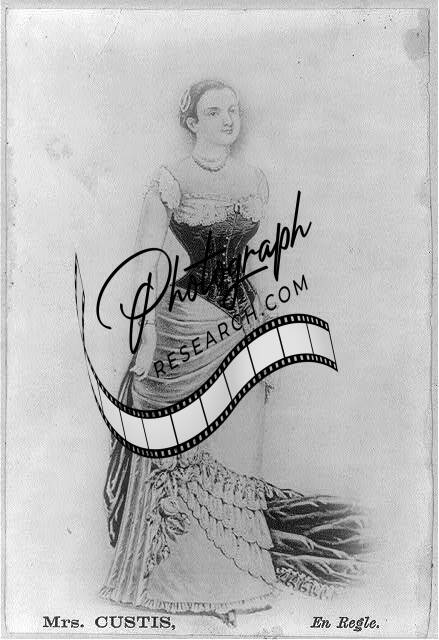 Photograph
RESEARCH.COM
Mrs. CUSTIS, En Regle.